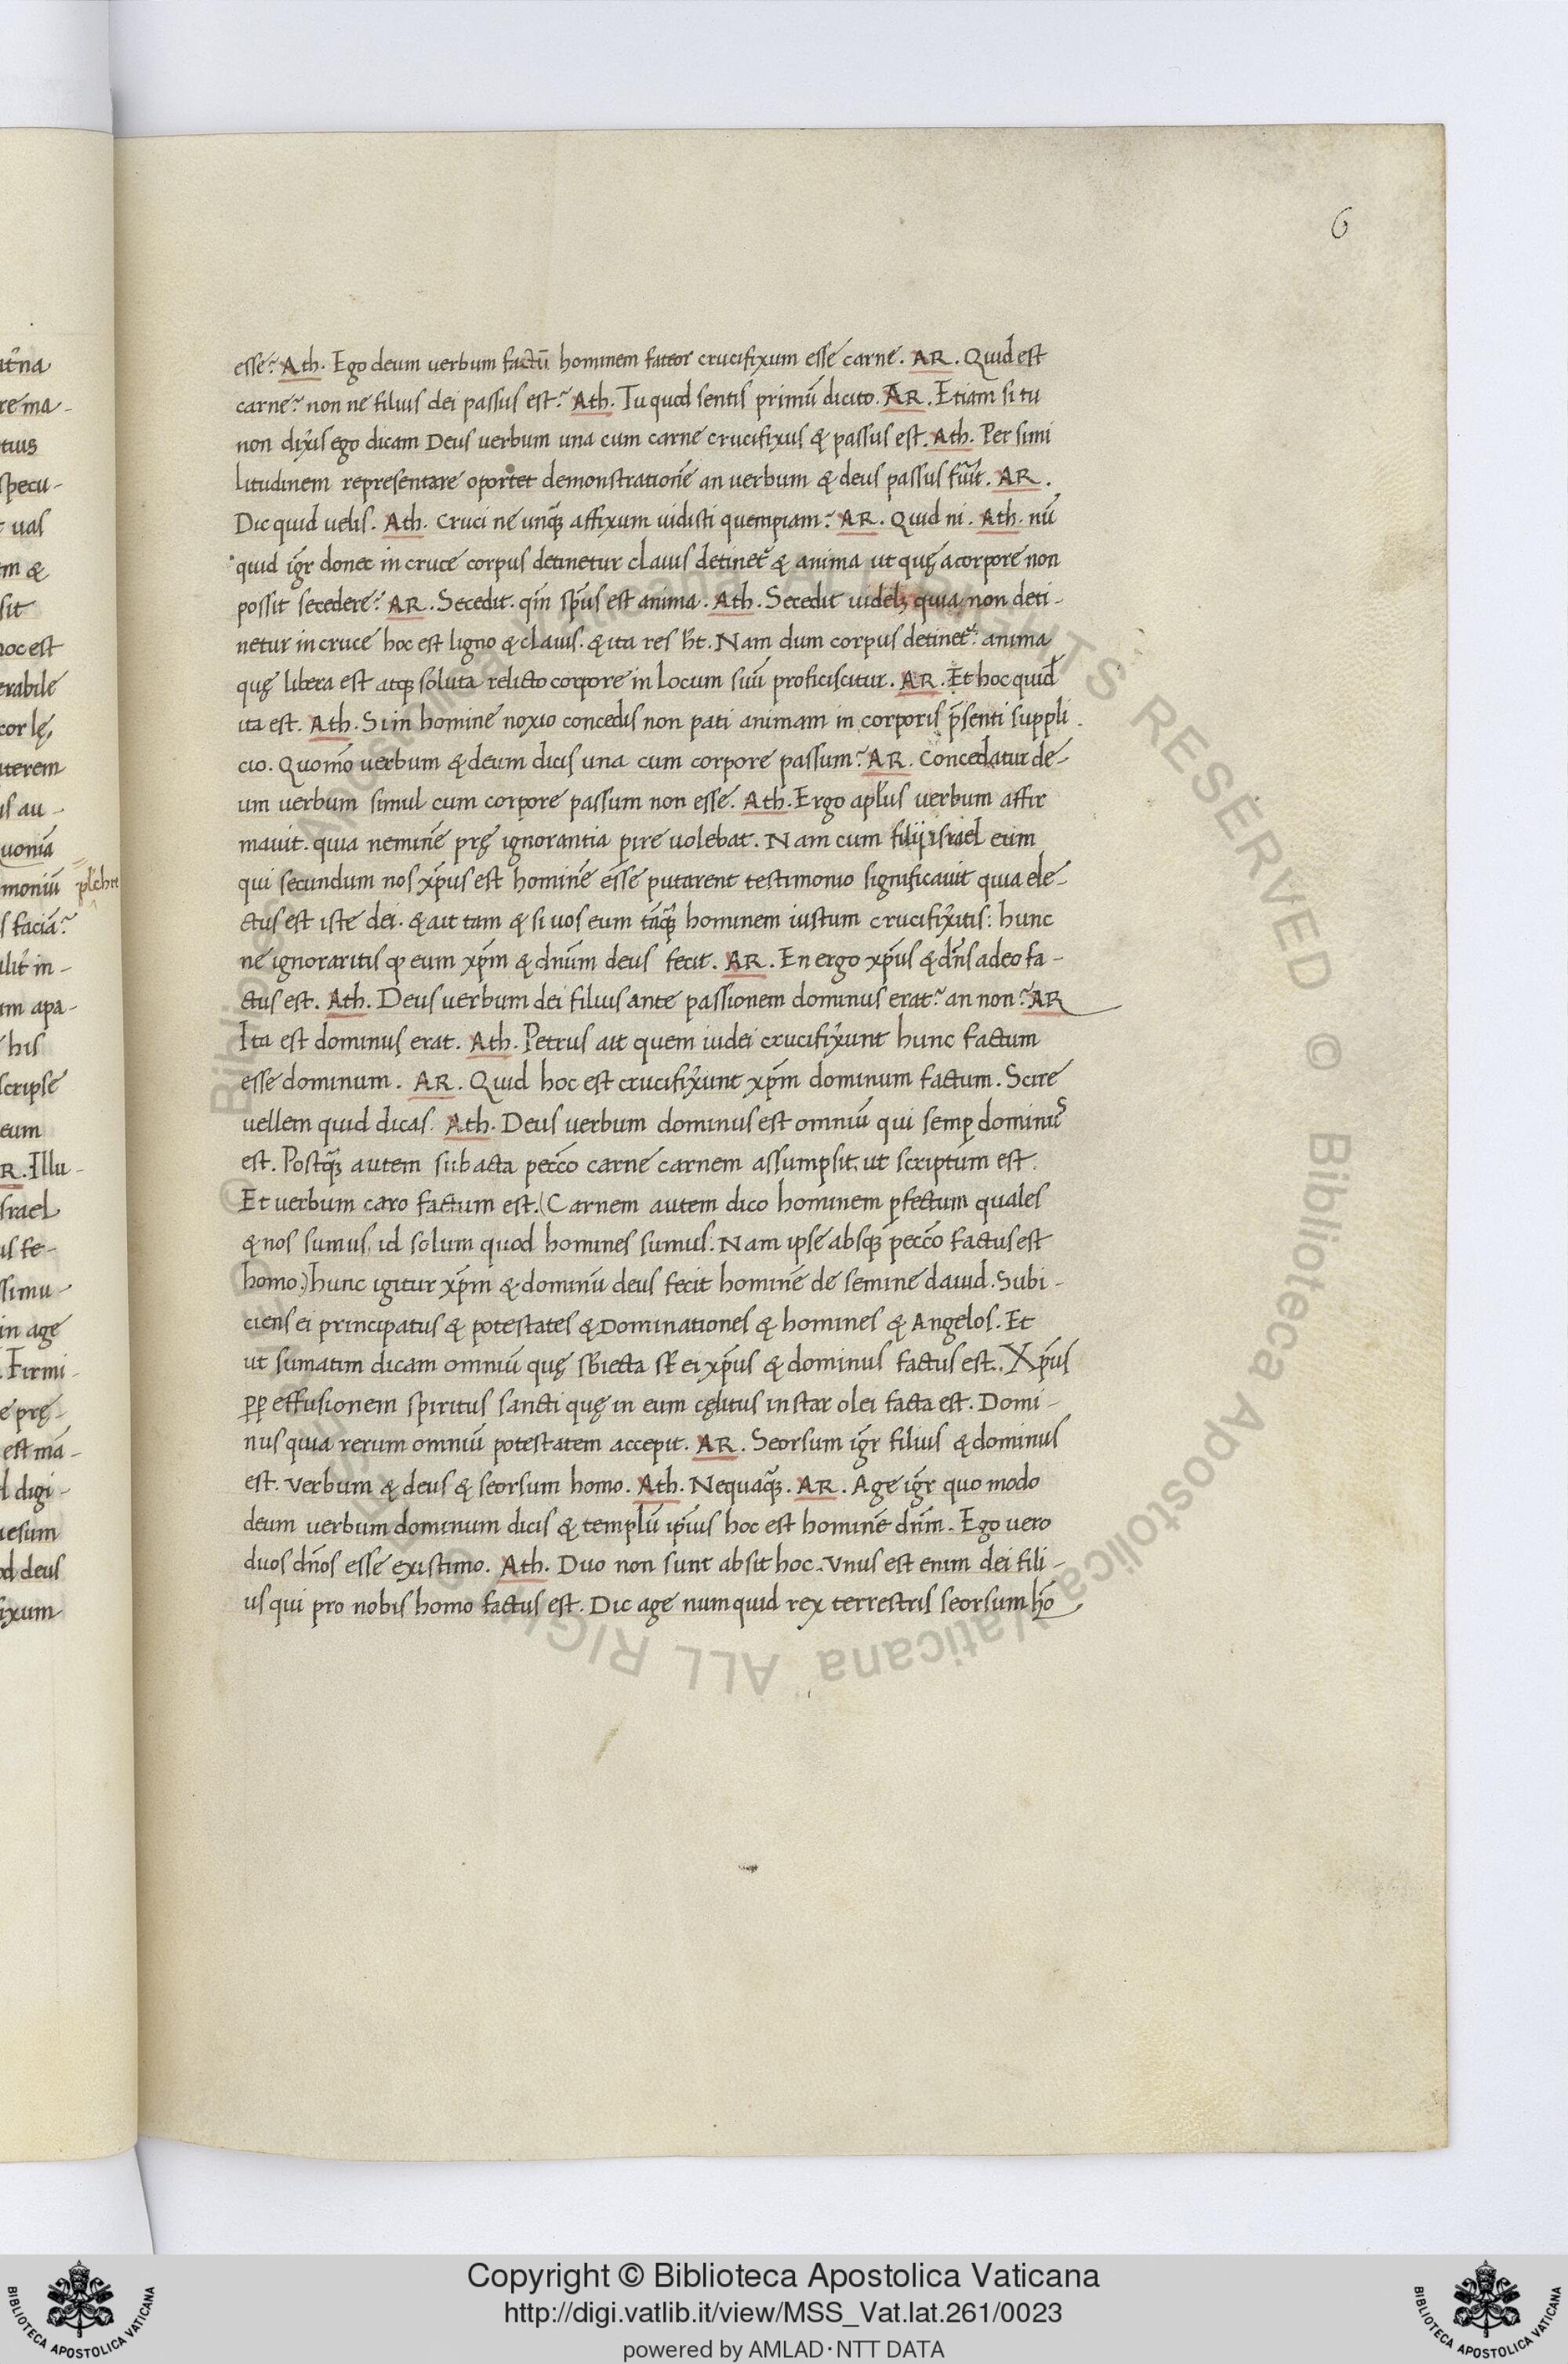 6
esse? Ath. Ego deum uerbum factū hominem fateor crucifixum esse carne. AR. Quid est
carne? non ne filius dei passus est? Ath. Tu quod sentis primū dicito. AR. Etiam si tu
non dixis ego dicam Deus uerbum una cum carne crucifixus & passus est. Ath. Per simi
litudinem representare oportet demonstrationē an uerbum & deus passus fuīt. AR.
Dic quid uelis. Ath. Cruci ne unq̄ affixum uidisti quempiam? AR. Quid ni. Ath. nū
quid igr̄ donec in cruce corpus detinetur clauis detinet᷑ & anima ut quę a corpore non
possit secedere? AR. Secedit. qm̄ sp̄us est anima. Ath. Secedit uidelꝫ quia non deti-
netur in cruce hoc est ligno & clauis. & ita res h̄t. Nam dum corpus detinet᷑: anima
quę libera est atqꝫ soluta relicto corpore in locum suū proficiscitur. AR. Et hoc quid̄
ita est. Ath. Si in homine noxio concedis non pati animam in corporis p̄senti suppli
cio. Quomō uerbum & deum dicis una cum corpore passum? AR. Concedatur de-
um uerbum simul cum corpore passum non esse. Ath. Ergo apl̄us uerbum affir
mauit. quia neminē prę ignorantia pire uolebat. Nam cum filij israel eum
qui secundum nos xp̄us est hominē esse putarent testimonio significauit quia ele-
ctus est iste dei. & ait tam & si uos eum tāq̄ hominem iustum crucifixitis: hunc
ne ignoraritis ꝙ eum xp̄m & dnūm deus fecit. AR. En ergo xp̄us & dn̄s adeo fa-
ctus est. Ath. Deus uerbum dei filius ante passionem dominus erat? an non? AR
Ita est dominus erat. Ath. Petrus ait quem iudei crucifixunt hunc factum
esse dominum. AR. Quid hoc est crucifixunt xp̄m dominum factum. Scire
uellem quid dicas. Ath. Deus uerbum dominus est omniū qui semp̲ dominus
est. Postq̄ autem subacta pecc̄o carne carnem assumpsit, ut scriptum est.
Et uerbum caro factum est. (Carnem autem dico hominem p̲fectum quales
& nos sumus, id solum quod homines sumus. Nam ipse absqꝫ pecc̄o factus est
homo.) hunc igitur xp̄m & dominū deus fecit hominē de semine dauid. Subi-
ciens ei principatus & potestates & Dominationes & homines & Angelos. Et
ut sumatim dicam omniū quę sb̄iecta st̄ ei xp̄us & dominus factus est. Xp̄us
pp̲ effusionem spiritus sancti quę in eum cęlitus instar olei facta est. Domi-
nus quia rerum omniū potestatem accepit. AR. Seorsum igr̄ filius & dominus
est. Verbum & deus & seorsum homo. Ath. Nequaq̄. AR. Age igr̄ quo modo
deum uerbum dominum dicis & templū ip̄ius hoc est hominē dn̄m. Ego uero
duos dn̄os esse existimo. Ath. Duo non sunt absit hoc. Vnus est enim dei fili-
us qui pro nobis homo factus est. Dic age numquid rex terrestris seorsum hō
Copyright © Biblioteca Apostolica Vaticana
http://digi.vatlib.it/view/MSS_Vat.lat.261/0023
powered by AMLAD·NTT DATA